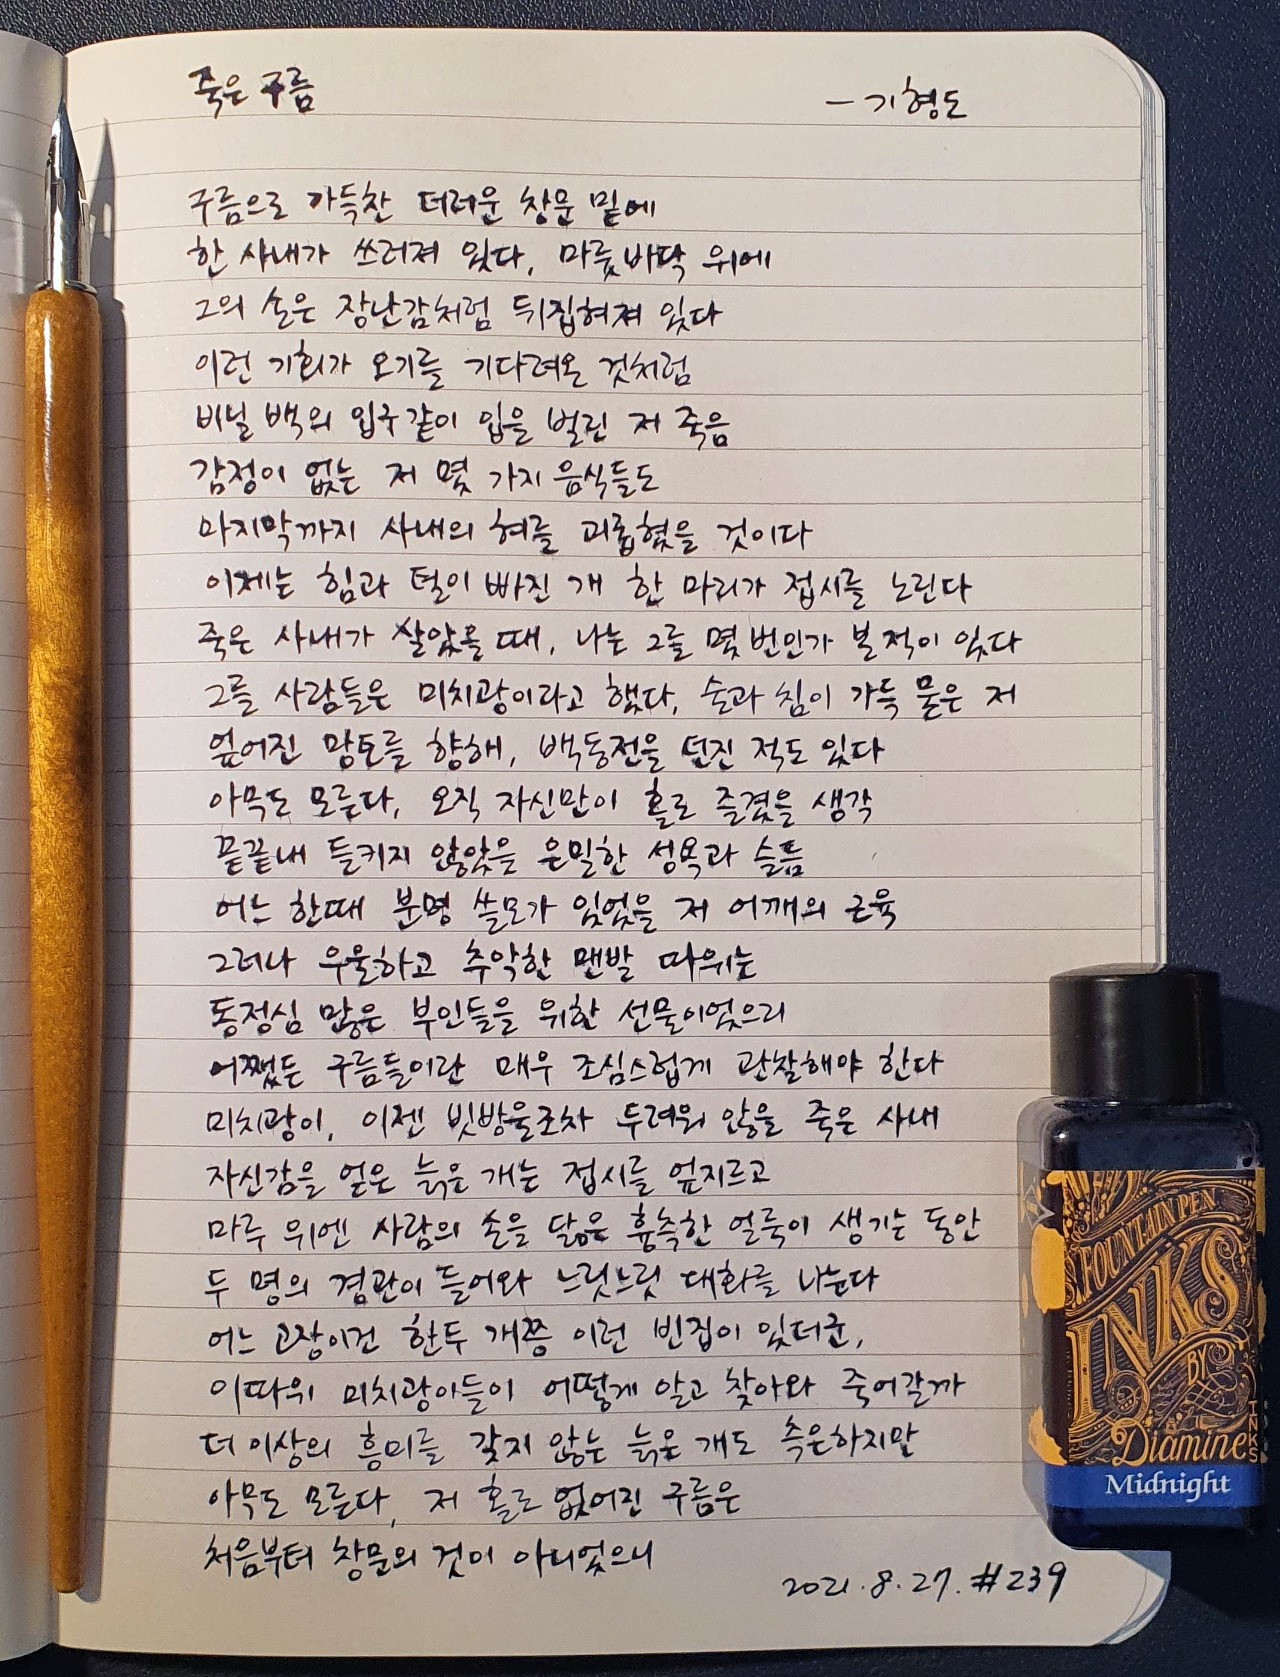 죽은 구름
- 기형도
구름으로 가득찬 더러운 창문 밑에
한 사내가 쓰러져 있다, 마룻바닥 위에
그의 손은 장난감처럼 뒤집혀져 있다
이런 기회가 오기를 기다려온 것처럼
비닐 백의 입구같이 입을 벌린 저 죽음
감정이 없는 저 몇 가지 음식들도
마지막까지 사내의 혀를 괴롭혔을 것이다
이제는 힘과 털이 빠진 개 한 마리가 접시를 노린다
죽은 사내가 살았을 때, 나는 그를 몇 번인가 본 적이 있다
그를 사람들은 미치광이라고 했다, 술과 침이 가득 묻은 저
엎어진 망토를 향해, 백동전을 던진 적도 있다
아무도 모른다, 오직 자신만이 홀로 즐겼을 생각
끝끝내 들키지 않았을 은밀한 성욕과 슬픔
어느 한때 분명 쓸모가 있었을 저 어깨의 근육
그러나 우울하고 추악한 맨발 따위는
동정심 많은 부인들을 위한 선물이었으리
어쨌든 구름들이란 매우 조심스럽게 관찰해야 한다
미치광이, 이젠 빗방울조차 두려워 않을 죽은 사내
자신감을 얻은 늙은 개는 접시를 엎지르고
마루 위엔 사람의 손을 닮은 흉측한 얼룩이 생기는 동안
두 명의 경관이 들어와 느릿느릿 대화를 나눈다
어느 고장이건 한두 개쯤 이런 빈집이 있더군,
이따위 미치광이들이 어떻게 알고 찾아와 죽어갈까
더 이상의 흥미를 갖지 않는 늙은 개도 측은하지만
아무도 모른다, 저 홀로 없어진 구름은
처음부터 창문의 것이 아니었으니
2021.8.27. #239
FOUNTAIN PEN
INKS
BY
Diamine
INKS
Midnight